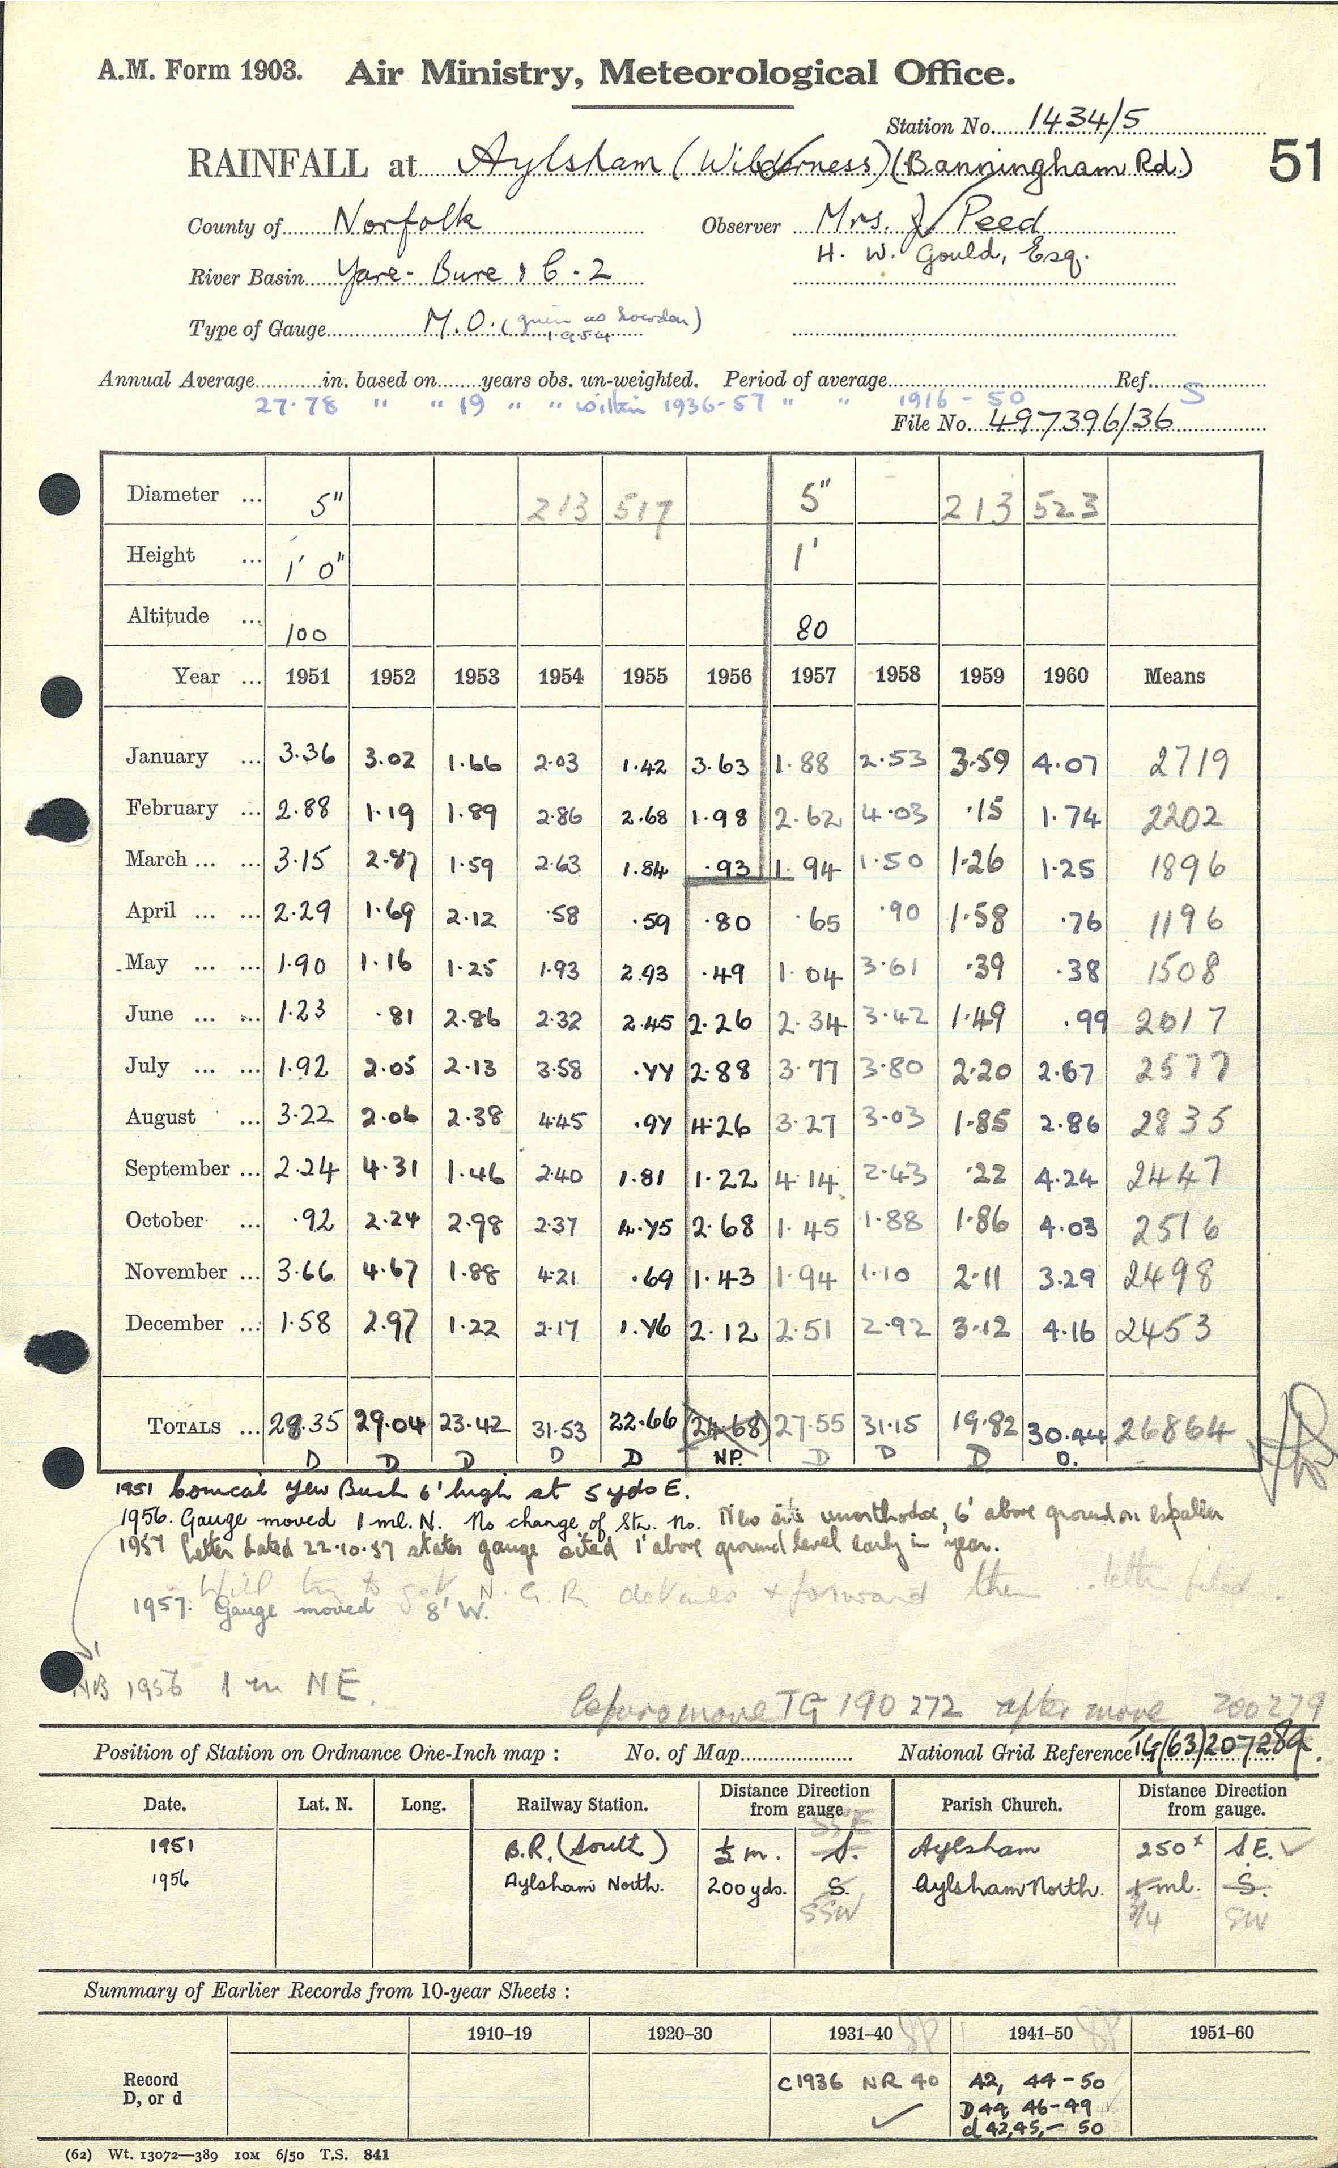 A.M. Form 1903. Air Ministry, Meteorological Office.
Station No. 1434/5
RAINFALL at Aylsham (Wilderness) (Banningham Rd.) 51
County of Norfolk Observer Mrs. J Peed
H. W. Gould, Esq.
River Basin Yare - Bure 1 C - 2
Type of Gauge M.O. (given as Snowdon)
1954
Annual Average in. based on years obs. un-weighted. Period of average Ref. S
27.78 " " 19 " " within 1936-57 " " 1916-50
File No. 497396/36
Diameter ... 5" 213 517 5" 213 523
Height ... 1' 0" 1'
Altitude ... 100 80
Year ... 1951 1952 1953 1954 1955 1956 1957 1958 1959 1960 Means
January ... 3.36 3.02 1.66 2.03 1.42 3.63 1.88 2.53 3.59 4.07 2719
February ... 2.88 1.19 1.89 2.86 2.68 1.98 2.62 4.03 .15 1.74 2202
March ... ... 3.15 2.87 1.59 2.63 1.84 .93 1.94 1.50 1.26 1.25 1896
April ... ... 2.29 1.69 2.12 .58 .59 .80 .65 .90 1.58 .76 1196
May ... ... 1.90 1.16 1.25 1.93 2.93 .49 1.04 3.61 .39 .38 1508
June ... ... 1.23 .81 2.86 2.32 2.45 2.26 2.34 3.42 1.49 .99 2017
July ... ... 1.92 2.05 2.13 3.58 .77 2.88 3.77 3.80 2.20 2.67 2577
August ... 3.22 2.06 2.38 4.45 .97 4.26 3.27 3.03 1.85 2.86 2835
September ... 2.24 4.31 1.46 2.40 1.81 1.22 4.14 2.43 .22 4.24 2447
October ... .92 2.24 2.98 2.37 4.75 2.68 1.45 1.88 1.86 4.03 2516
November ... 3.66 4.67 1.88 4.21 .69 1.43 1.94 1.10 2.11 3.29 2498
December ... 1.58 2.97 1.22 2.17 1.76 2.12 2.51 2.92 3.12 4.16 2453
TOTALS ... 28.35 29.04 23.42 31.53 22.66 (24.68) 27.55 31.15 19.82 30.44 26864
D D D D D NP. D D D D.
1951 Conical Yew Bush 6' high at 5 yds E.
1956. Gauge moved 1 ml. N. No change of Stn. No. New site unorthodox, 6' above ground on espalier
1957 Letter dated 22.10.57 states gauge sited 1' above ground level early in year.
Will try to get N.G.R. details & forward them letter filed.
1957. Gauge moved 8' W.
NB 1956 1 m NE.
before move TG 190 272 after move 200279
Position of Station on Ordnance One-Inch map : No. of Map National Grid Reference TG(63)207289.
Date. Lat. N. Long. Railway Station. Distance Direction from gauge Parish Church. Distance Direction from gauge.
SSE
1951 B.R. (South) ½ m. S. Aylsham 250ˣ S.E.
1956 Aylsham North. 200 yds. S. Aylsham North. 1 ml. S.
SSW 3/4 SW
Summary of Earlier Records from 10-year Sheets :
1910–19 1920–30 1931–40 1941–50 1951–60
Record C1936 NR 40 42, 44-50
D, or d D44, 46-49
d 42,45,- 50
(62) Wt. 13072—389 10M 6/50 T.S. 841